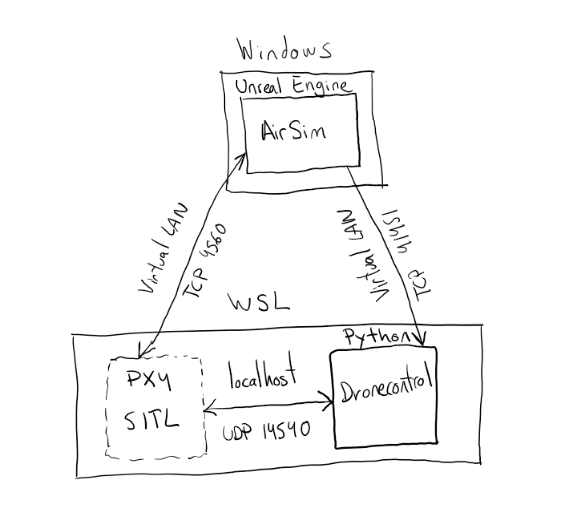 Windows
Unreal Engine
AirSim
Virtual LAN
TCP 4560
Virtual LAN
TCP 41451
WSL
Python
PX4
SITL
localhost
UDP 14540
Dronecontrol